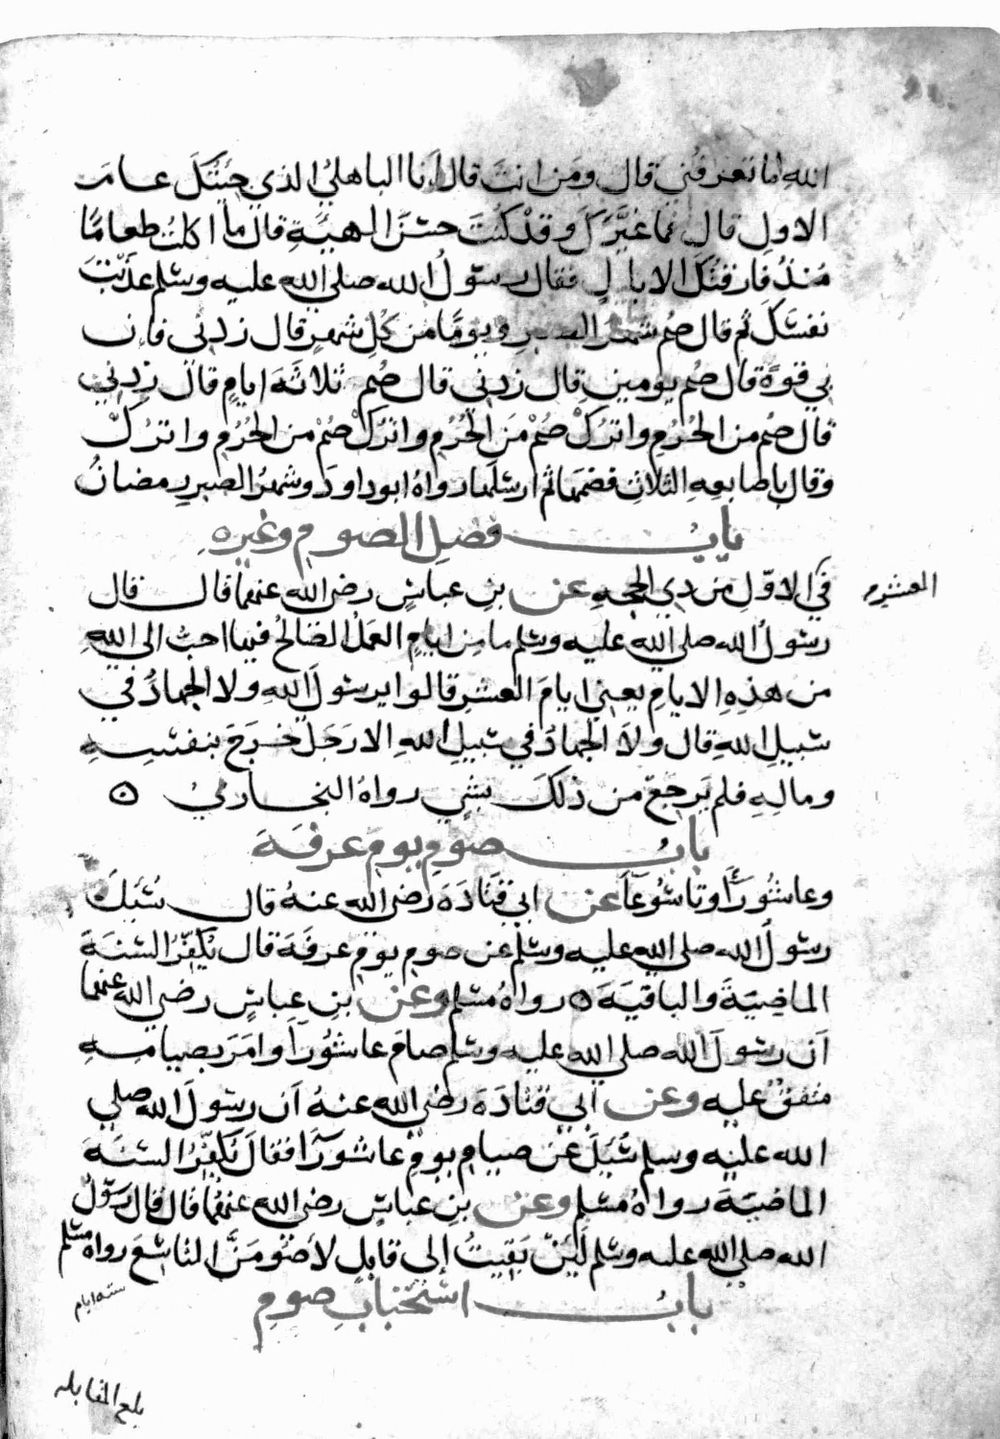 الله اما تعرفني قال ومن انت قال انا الباهلي الذي جئتك عام
الاول قال فما غيرك وقد كنت حسن الهيئة قال ما اكلت طعاما
منذ فارقتك الا بليل فقال رسول الله صلى الله عليه وسلم عذبت
نفسك ثم قال صم شهر الصبر ويوما من كل شهر قال زدني فان
بي قوة قال صم يومين قال زدني قال صم ثلاثة ايام قال زدني
قال صم من الحرم واترك صم من الحرم واترك صم من الحرم واترك
وقال باصابعه الثلاث فضمها ثم ارسلها رواه ابو داود وشهر الصبر رمضان
باب فضل الصوم وغيره
في الاول من ذي الحجه عن بن عباس رضي الله عنهما قال قال
العشر
رسول الله صلى الله عليه وسلم ما من ايام العمل الصالح فيها احب الى الله
من هذه الايام يعني ايام العشر قالوا يرسول الله ولا الجهاد في
سبيل الله قال ولا الجهاد في سبيل الله الا رجل خرج بنفسه
وماله فلم يرجع من ذلك بشي رواه البخاري ه
باب صوم يوم عرفة
وعاشوراء وتاسوعاء عن ابي قتادة رضي الله عنه قال سئل
رسول الله صلى الله عليه وسلم عن صوم يوم عرفة قال يكفر السنة
الماضية والباقية ه رواه مسلم وعن بن عباس رضي الله عنهما
ان رسول الله صلى الله عليه وسلم صام عاشوراء وامر بصيامه
متفق عليه وعن ابي قتادة رضي الله عنه ان رسول الله صلى
الله عليه وسلم سئل عن صيام يوم عاشوراء فقال يكفر السنة
الماضية رواه مسلم وعن بن عباس رضي الله عنهما قال قال رسول
الله صلى الله عليه وسلم لئن بقيت الى قابل لاصومن التاسع رواه مسلم
باب استحباب صوم
سته ايام
بلغ المقابله